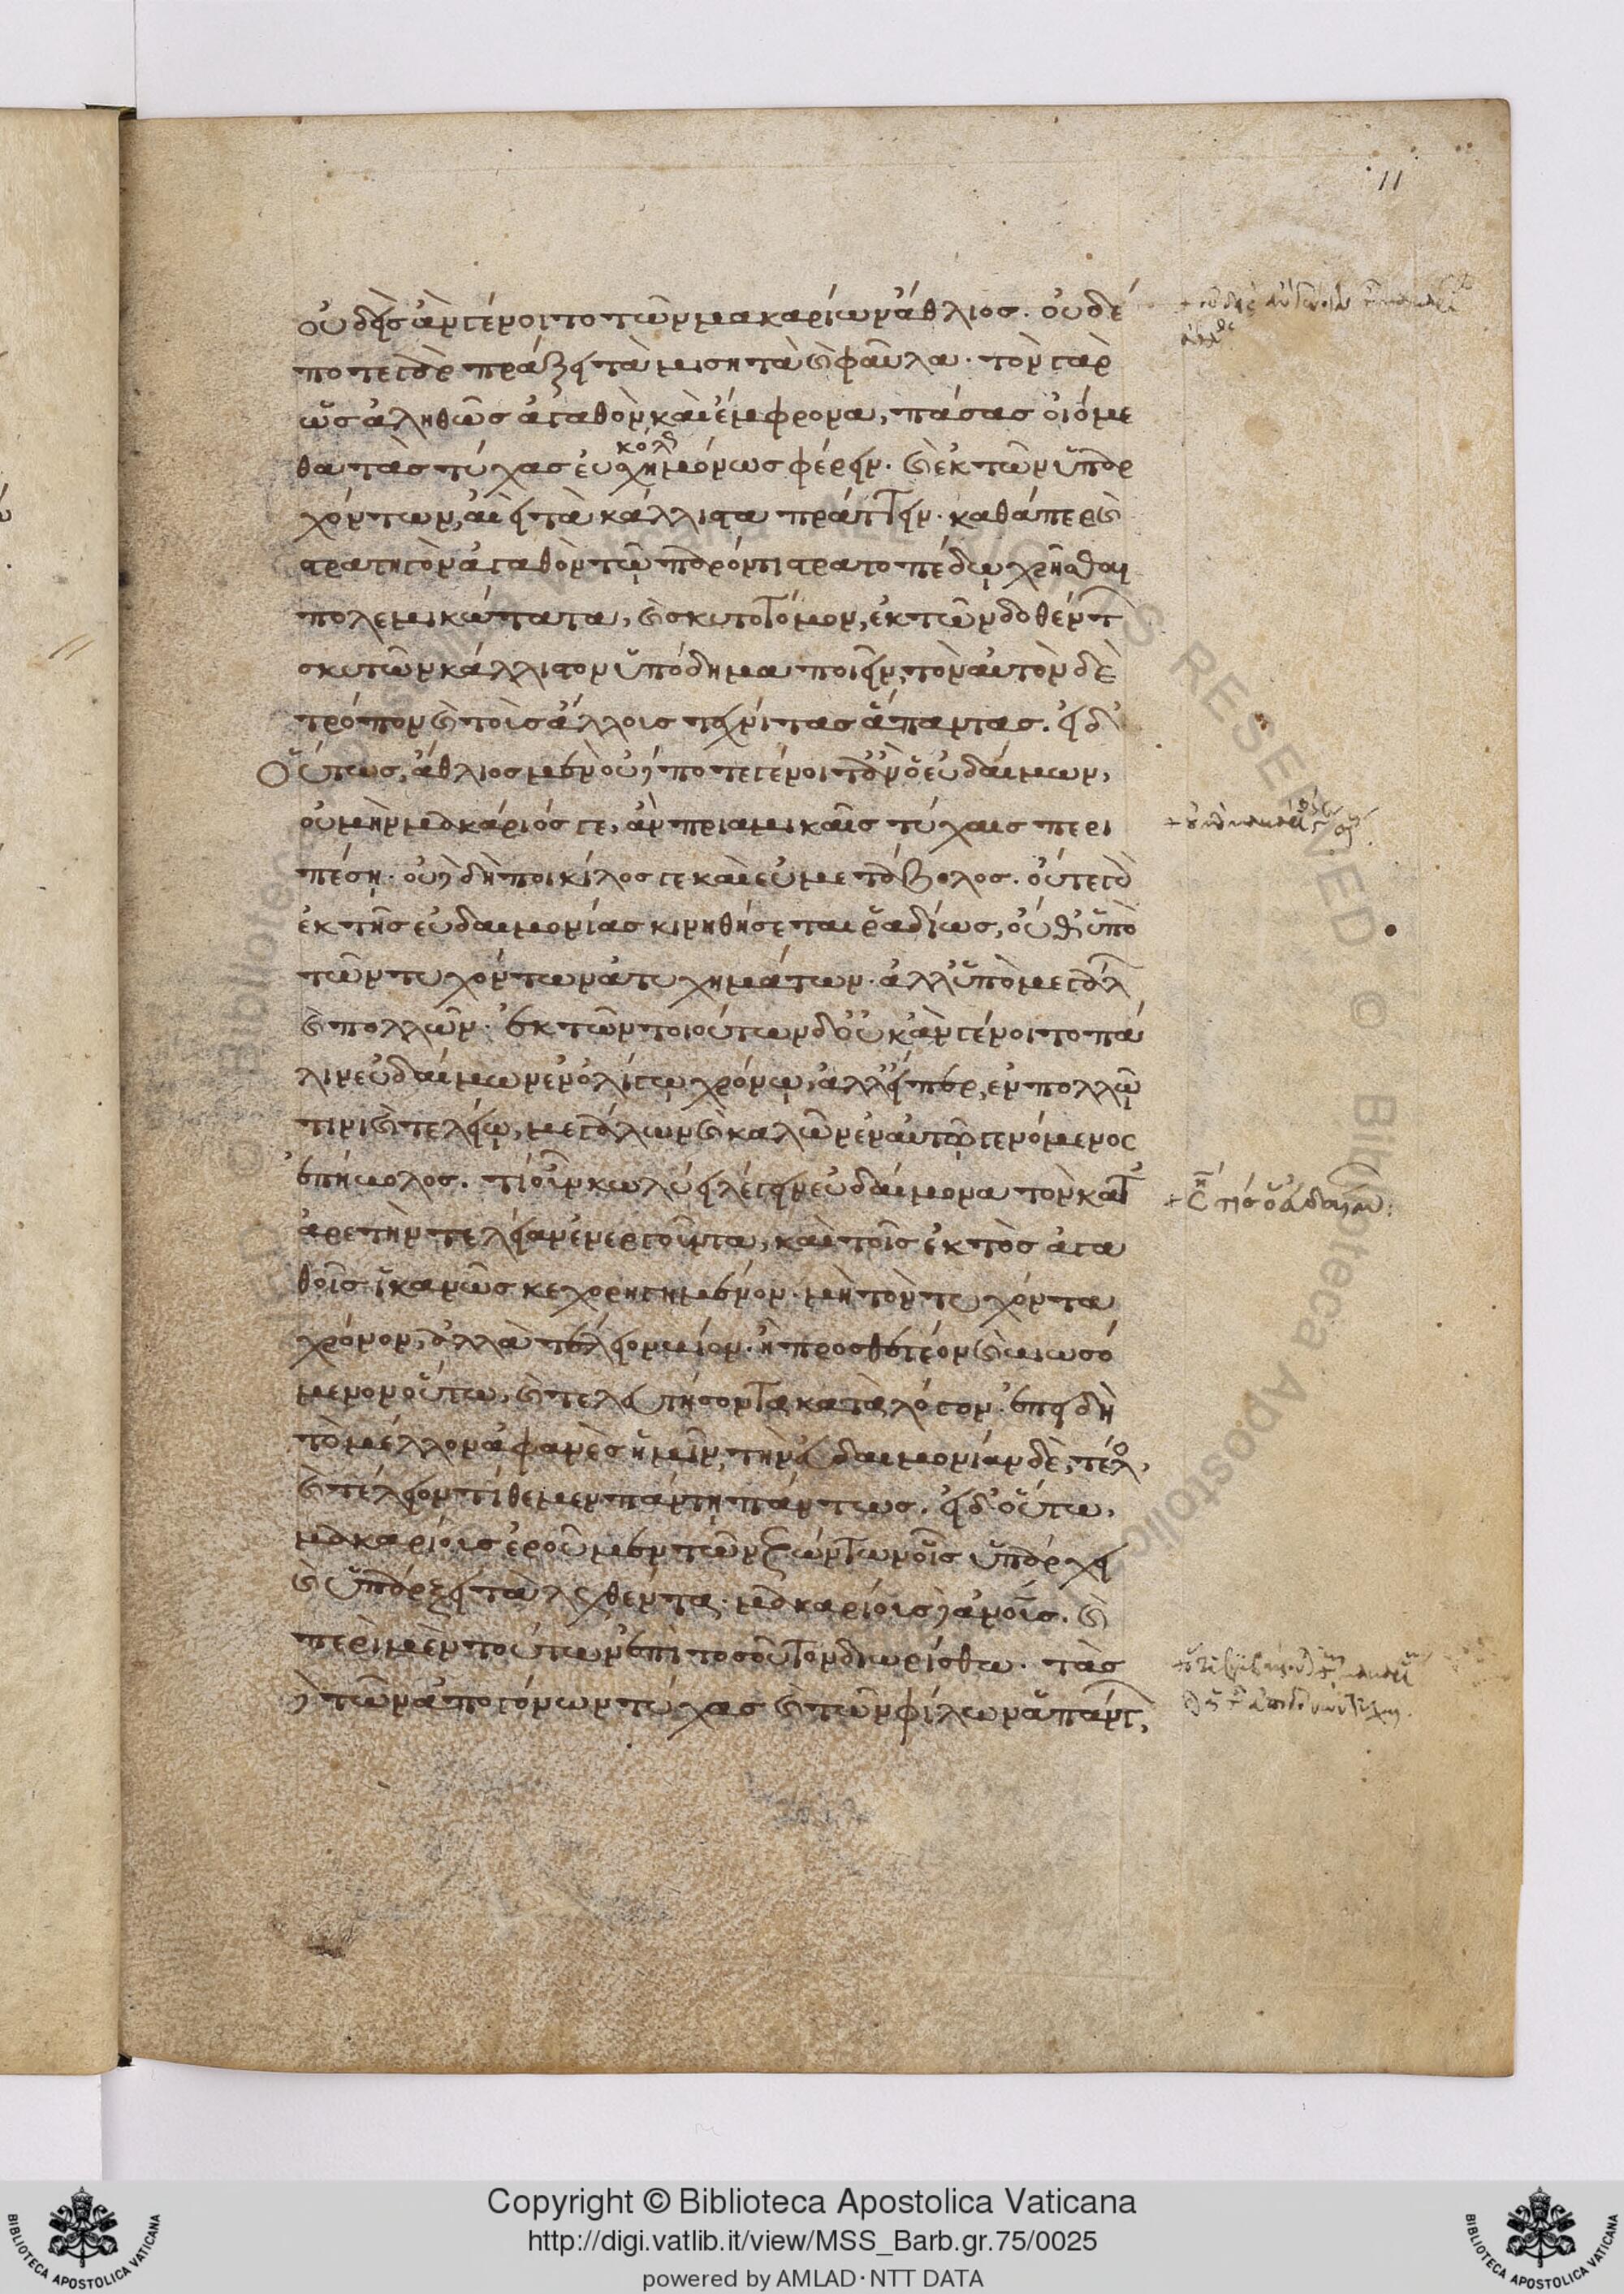 11
οὐδεὶς ἂν γένοιτο τῶν μακαρίων ἄθλιος· οὐδέ
ποτε γὰρ πράξει τὰ μισητὰ καὶ φαῦλα· τὸν γὰρ
ὡς ἀληθῶς ἀγαθὸν καὶ ἔμφρονα, πάσας οἰόμε
θα τὰς τύχας εὐσχημόνως φέρειν· καὶ ἐκ τῶν ὑπαρ
χόντων, ἀεὶ τὰ κάλλιστα πράττειν· καθάπερ καὶ
στρατηγὸν ἀγαθὸν τῷ παρόντι στρατοπέδῳ χρῆσθαι
πολεμικώτατα, καὶ σκυτοτόμον, ἐκ τῶν δοθέντ
σκυτῶν κάλλιστον ὑπόδημα ποιεῖν, τὸν αὐτὸν δὲ
τρόπον καὶ τοὺς ἄλλους τεχνίτας ἅπαντας. εἰ δ'
οὕτως, ἄθλιος μὲν οὐδέποτε γένοιτ' ἂν ὁ εὐδαίμων,
οὐ μὴν μακάριός γε, ἂν πριαμικαῖς τύχαις περι
πέσῃ· οὐδὲ δὴ ποικίλος γε καὶ εὐμετάβολος. οὔτε γὰρ
ἐκ τῆς εὐδαιμονίας κινηθήσεται ῥαδίως, οὔθ' ὑπὸ
τῶν τυχόντων ἀτυχημάτων· ἀλλ' ὑπὸ μεγάλ
καὶ πολλῶν· ἐκ τῶν τοιούτων δ' οὐκ ἂν γένοιτο πά
λιν εὐδαίμων ἐν ὀλίγῳ χρόνῳ, ἀλλ' εἴπερ, ἐν πολλῷ
τινι καὶ τελείῳ, μεγάλων καὶ καλῶν ἐν αὐτῷ γενόμενος
ἐπήβολος. τί οὖν κωλύει λέγειν εὐδαίμονα τὸν κατ'
ἀρετὴν τελείαν ἐνεργοῦντα, καὶ τοῖς ἐκτὸς ἀγα
θοῖς ἱκανῶς κεχορηγημένον· μὴ τὸν τυχόντα
χρόνον, ἀλλὰ τέλειον βίον· ἢ προσθετέον καὶ βιωσό
μενον οὕτω, καὶ τελευτήσοντα κατὰ λόγον· ἐπειδὴ
τὸ μέλλον ἀφανὲς ἡμῖν, τὴν εὐδαιμονίαν δὲ, τέλος
καὶ τέλειον τίθεμεν πάντῃ πάντως. εἰ δ' οὕτω,
μακαρίους ἐροῦμεν τῶν ζώντων οἷς ὑπάρχει
καὶ ὑπάρξει τὰ λεχθέντα· μακαρίους δ' ἀνους. καὶ
περὶ μὲν τούτων ἐπὶ τοσοῦτον διωρίσθω. τὰς
δὲ τῶν ἀπογόνων τύχας καὶ τῶν φίλων ἁπάντ
Copyright © Biblioteca Apostolica Vaticana
http://digi.vatlib.it/view/MSS_Barb.gr.75/0025
powered by AMLAD · NTT DATA